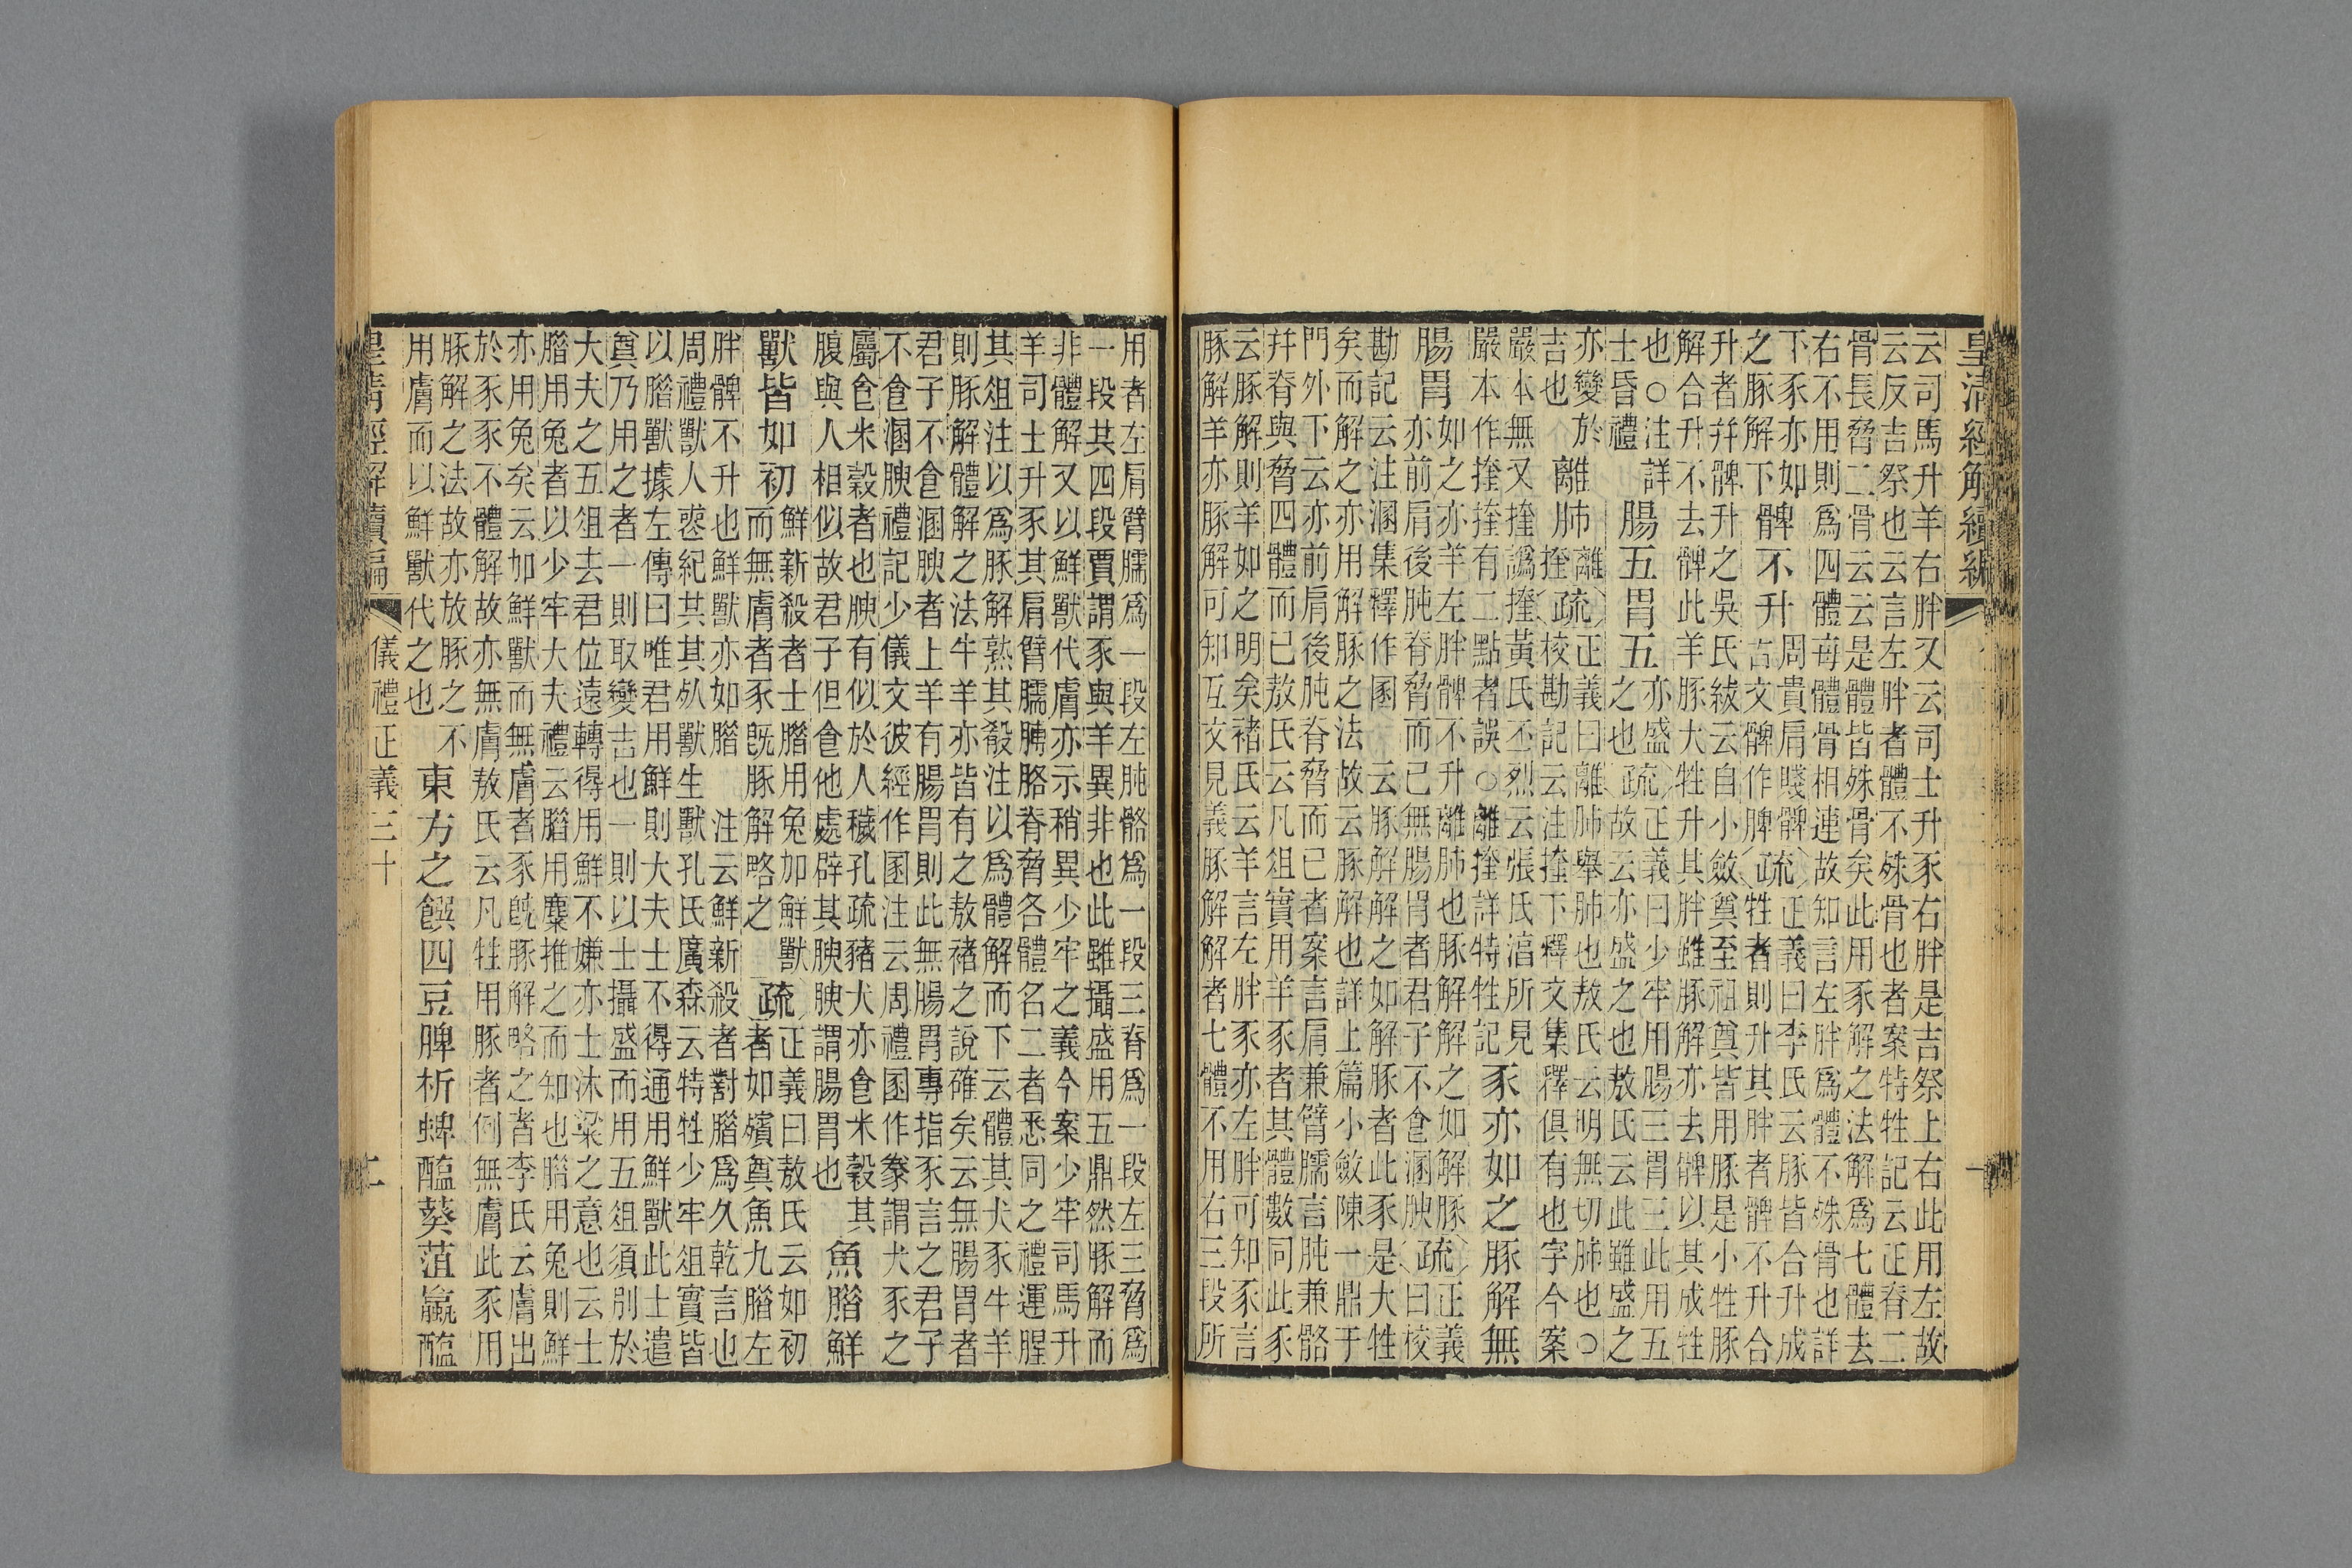 皇清經解續編
云司馬升羊右胖又云司士升豕右胖是吉祭上右此用左故
云反吉祭也云言左胖者體不殊骨也者案特牲記云正脊二
骨長脅二骨云云是體皆殊骨矣此用豕解之法解爲七體去
右不用則爲四體每體骨相連故知言左胖爲體不殊骨也詳
下豕亦如
之豕解下
髀不升
周貴肩賤髀
古文髀作脾
疏
正義曰李氏云豚皆合升成
牲者則升其胖者髀不升合
升者幷髀升之吳氏紱云自小斂奠至祖奠皆用豚是小牲豚
解合升不去髀此羊豕大牲升其胖雖豚解亦去髀以其成牲
也○注詳
士昏禮
腸五胃五
亦盛
之也
疏
正義曰少牢用腸三胃三此用五
故云亦盛之也敖氏云此雖盛之
亦變於
吉也
離肺
離
挳
疏
正義曰離肺舉肺也敖氏云明無切肺也○
校勘記云注挳下釋文集釋俱有也字今案
嚴本無又挳譌摼黃氏丕烈云張氏淳所見
嚴本作挳挳有二點者誤○離挳詳特牲記
豕亦如之豚解無
腸胃
如之亦羊左胖髀不升離肺也豚解解之如解豚
亦前肩後肫脊脅而已無腸胃者君子不食溷腴
疏
正義
曰校
勘記云注溷集釋作圂
云豚解解之如解豚者此豕是大牲
矣而解之亦用解豚之法故云豚解也詳上篇小斂陳一鼎于
門外下云亦前肩後肫脊脅而已者案言肩兼臂臑言肫兼骼
幷脊與脅四體而已敖氏云凡俎實用羊豕者其體數同此豕
云豚解則羊如之明矣褚氏云羊言左胖豕亦左胖可知豕言
豚解羊亦豚解可知互文見義豚解解者七體不用右三段所
用者左肩臂臑爲一段左肫骼爲一段三脊爲一段左三脅爲
一段其四段賈謂豕與羊異非也此雖攝盛用五鼎然豚解而
非體解又以鮮獸代膚亦示稍異少牢之義今案少牢司馬升
羊司士升豕其肩臂臑膊胳脊脅各體名二者悉同之禮運腥
其俎注以爲豚解熟其殽注以爲體解而下云體其犬豕牛羊
則豚解體解之法牛羊亦皆有之敖褚之說確矣云無腸胃者
君子不食溷腴者上羊有腸胃則此無腸胃專指豕言之君子
不食溷腴禮記少儀文彼經作圂注云周禮圂作豢謂犬豕之
屬食米穀者也腴有似於人穢孔疏豬犬亦食米穀其
腹與人相似故君子但食他處辟其腴腴謂腸胃也
魚腊鮮
獸皆如初
鮮新殺者士腊用兔加鮮獸
而無膚者豕旣豚解略之
疏
正義曰敖氏云如初
者如殯奠魚九腊左
胖髀不升也鮮獸亦如腊
注云鮮新殺者對腊爲久乾言也
周禮獸人䍃紀其其𠛱獸生獸孔氏廣森云特牲少牢俎實皆
以腊獸據左傳曰唯君用鮮則大夫士不得通用鮮獸此士遣
奠乃用之者一則取變吉也一則以士攝盛而用五俎須別於
大夫之五俎去君位遠轉得用鮮不嫌亦士沐粱之意也云士
腊用兔者以少牢大夫禮云腊用麋推之而知也腊用兔則鮮
亦用兔矣云加鮮獸而無膚者豕旣豚解略之者李氏云膚出
於豕豕不體解故亦無膚敖氏云凡牲用豚者例無膚此豕用
豚解之法故亦放豚之不
用膚而以鮮獸代之也
東方之饌四豆脾析蜱醢葵菹蠃醢
皇清經解續編
儀禮正義三十
二